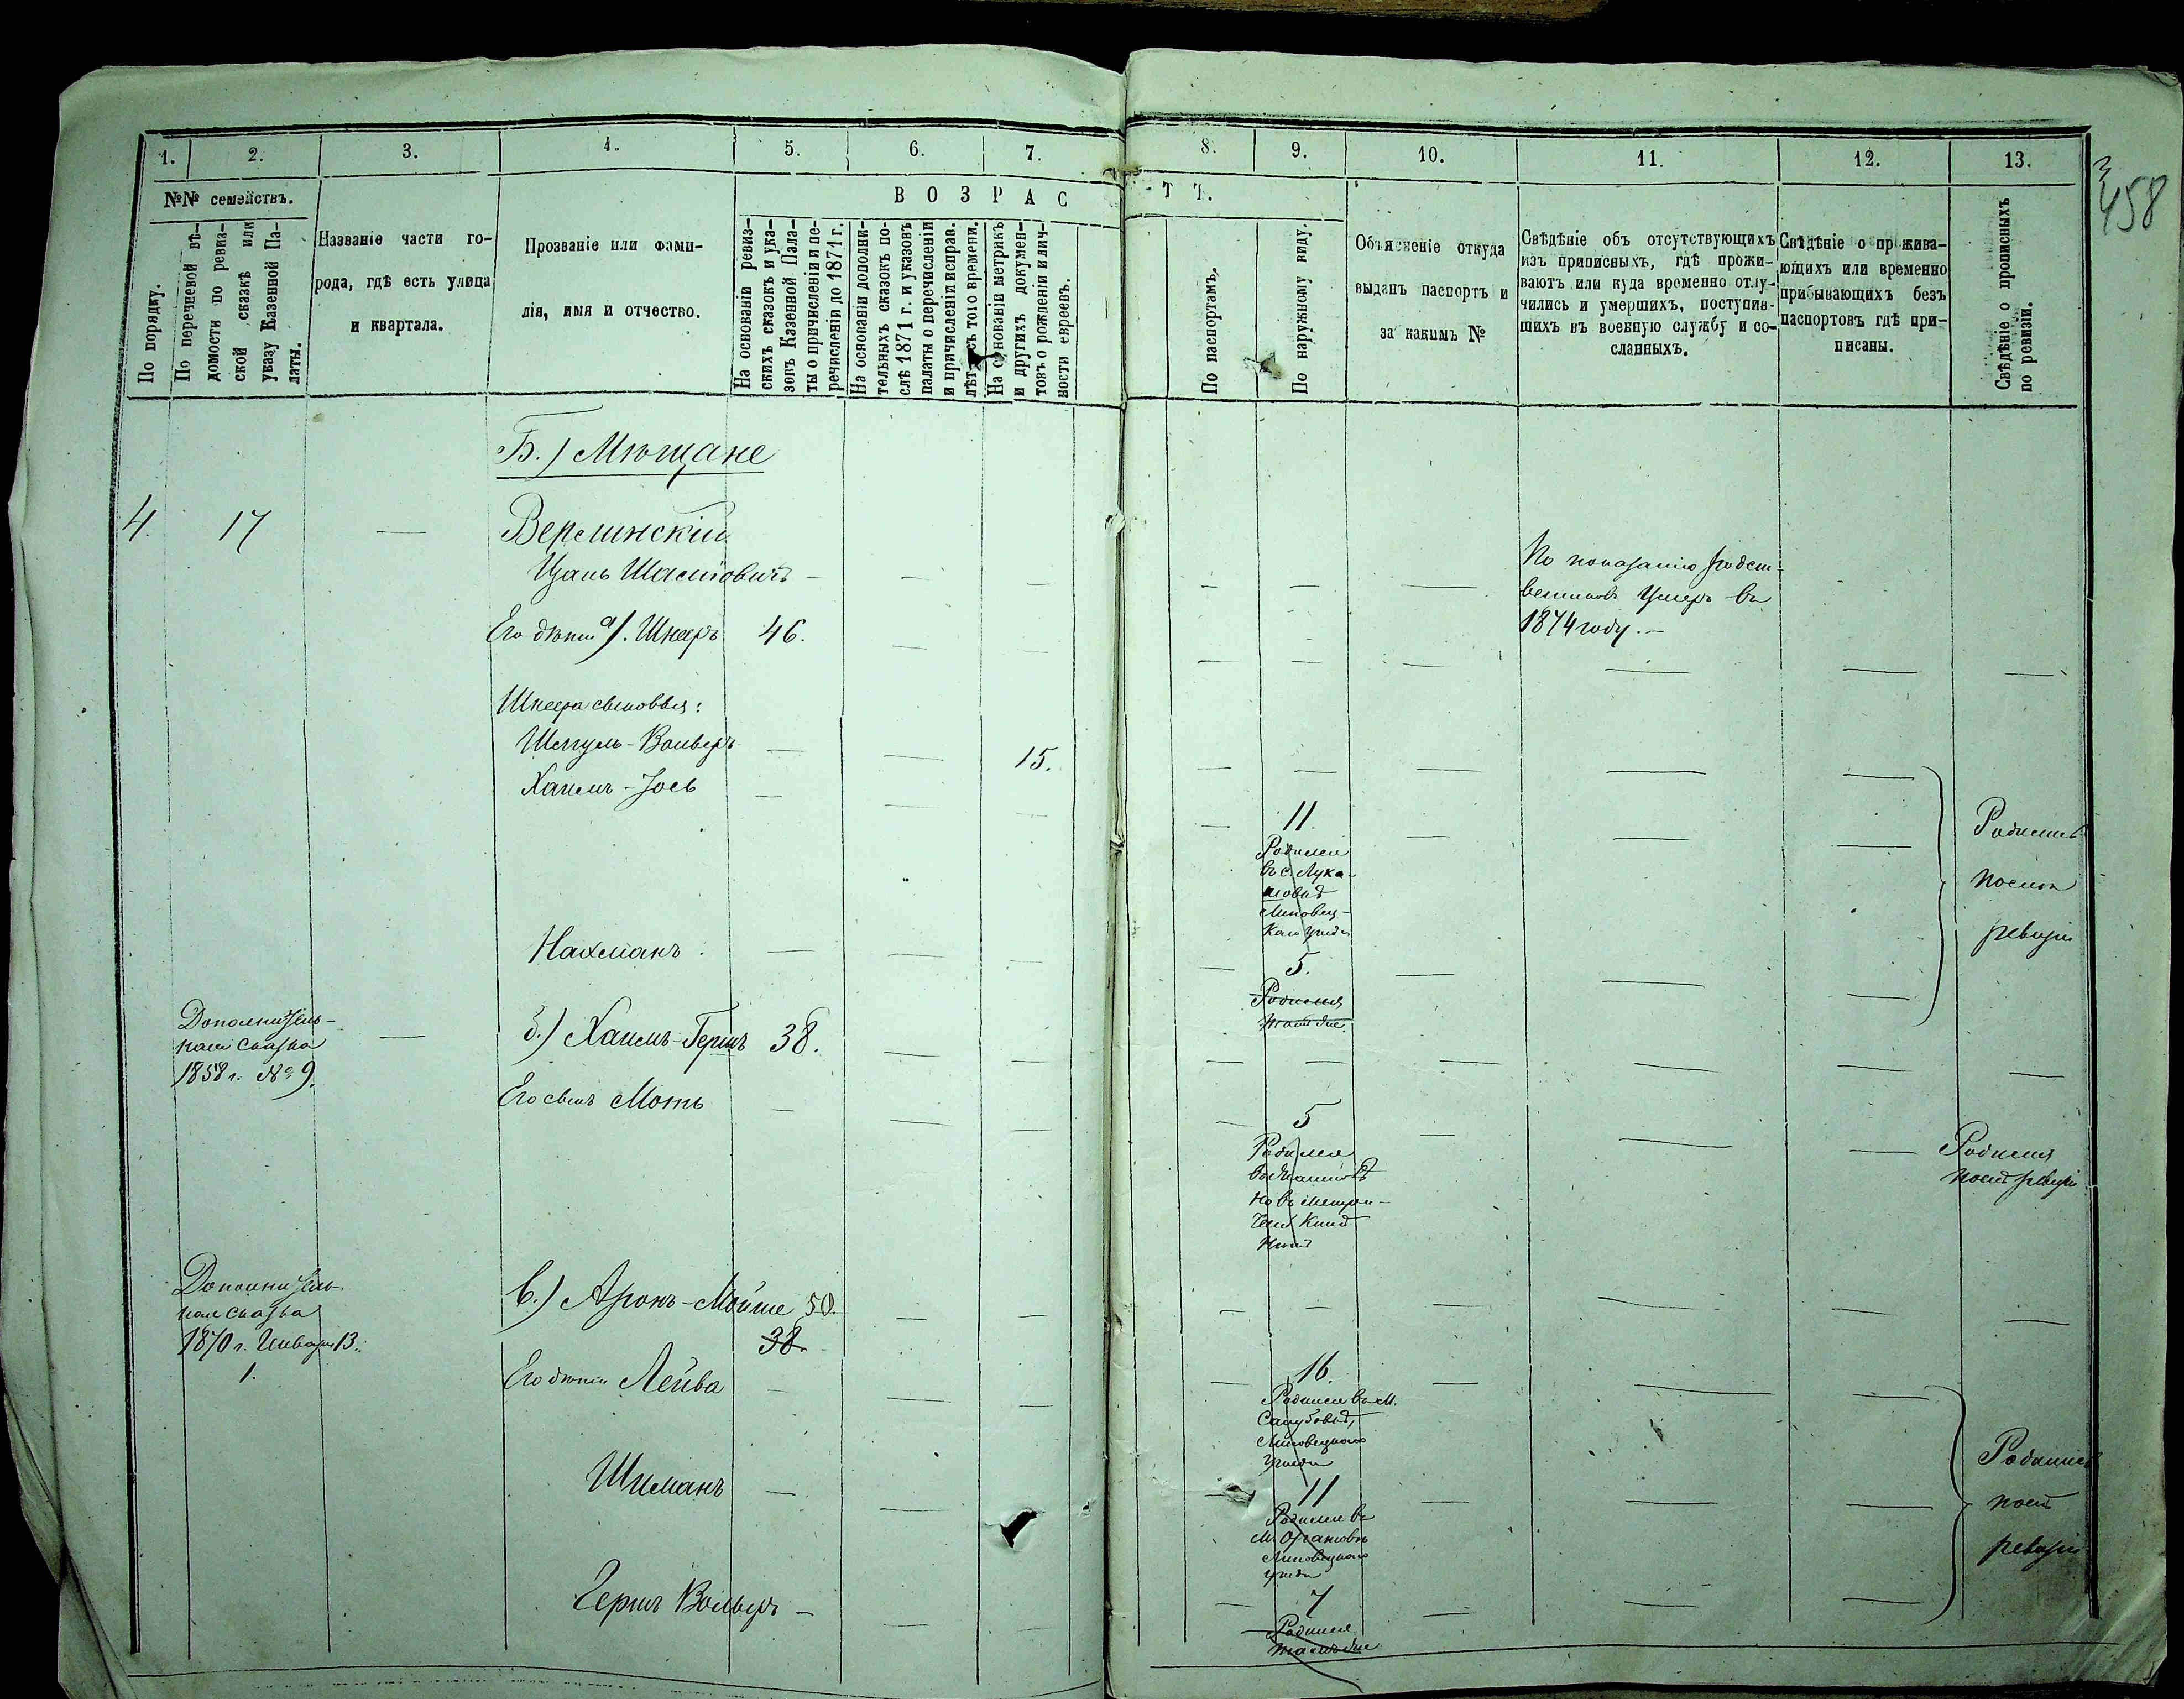 1. 2. 3. 4. 5. 6. 7. 8. 9. 10. 11. 12. 13.
3
458
№№ семействъ.
По порядку.
По перечневой вѣ-
домости по ревиз-
ской сказкѣ или
указу Казенной Па-
латы.
Названіе части го-
рода, гдѣ есть улица
и квартала.
Прозваніе или фами-
лія, имя и отчество.
ВОЗРАС
ТТ.
На основаніи ревиз-
скихъ сказокъ и ука-
зовъ Казенной Пала-
ты о причисленіи и пе-
речисленіи до 1871 г.
На основаніи дополни-
тельныхъ сказокъ по-
слѣ 1871 г. и указовъ
палаты о перечисленіи
и причисленіи исправ.
лѣтъ съ того времени.
На основаніи метрикъ
и другихъ докумен-
товъ о рожденіи и лич-
ности евреевъ.
По паспортамъ.
По наружному виду.
Объясненіе откуда
выданъ паспортъ и
за какимъ №
Свѣдѣніе объ отсутствующихъ
изъ приписныхъ, гдѣ прожи-
ваютъ или куда временно отлу-
чились и умершихъ, поступив-
шихъ въ военную службу и со-
сланныхъ.
Свѣдѣніе о прожива-
ющихъ или временно
прибывающихъ безъ
паспортовъ гдѣ при-
писаны.
Свѣдѣніе о прописныхъ
по ревизіи.
Б.) Мѣщане
4. 17 — Верлинскій
По показанію родст-
венниковъ умеръ въ
1874 году. —
Его дѣти а). Шнееръ 46.
Шнеера сыновья:
Шмуль-Вольверъ — — 15.
Хаимъ-Іось — — 11
Родился
въ с. Лука-
шовкѣ
Липовец-
каго уѣзда
Нахманъ — — — 5.
Родился
тамъ же
Родились
послѣ
ревизіи
Дополнитель-
ная сказка
1858 г. № 9.
б.) Хаимъ-Гершъ 38.
Его сынъ Моть — — — 5
Родился
но въ метри-
ческ. книгѣ
нѣтъ
Родился
послѣ ревизіи
Дополнитель-
ная сказка
1870 г. Января 13.
1.
в.) Аронъ-Мойше 50
38.
Его дѣти Лейва — — — 16.
Родился въ м.
Липовецкаго
уѣзда
Шиманъ — — — 11
Родился въ
Липовецкаго
уѣзда
Гершъ Вольверъ — — 7
Родился
тамъ же
Родились
послѣ
ревизіи